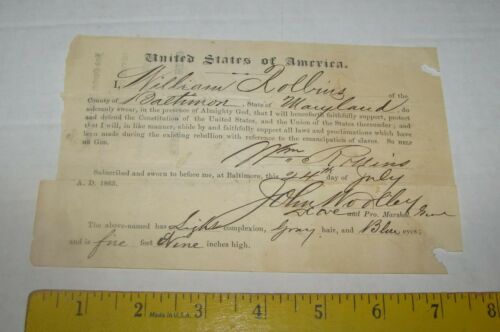 United States of America.
I, William Robbins of the
County of Baltimore, State of Maryland, do
solemnly swear, in the presence of Almighty God, that I will henceforth faithfully support, protect
and defend the Constitution of the United States, and the Union of the States thereunder; and
that I will, in like manner, abide by and faithfully support all laws and proclamations which have
been made during the existing rebellion with reference to the emancipation of slaves. So HELP
ME GOD.
Wm Robbins
Subscribed and sworn to before me, at Baltimore, this 24th day of July
A. D. 1865.
John Woolley
and Pro. Marshal
The above-named has Light complexion, Gray hair, and Blue eyes;
and is five feet Nine inches high.
MADE IN U.S.A.
1 2 3 4 5 6 7 8